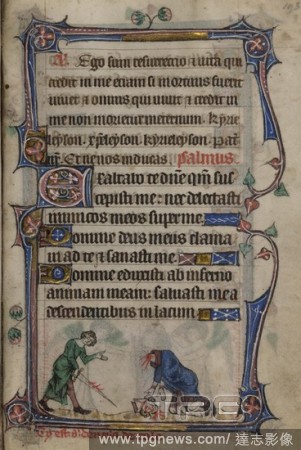 Ego sum resurreccio ⁊ vita qui
credit in me etiam si mortuus fuerit
vivet ⁊ omnis qui vivit ⁊ credit in
me non morietur in eternum. Kyrie
leyson. xp̄eleyson. kyrieleyson. Pat̄
nr̄. Et ne nos inducas. psalmus
Exaltabo te dn̄e qm̄ sus
cepisti me: nec delectasti
inimicos meos super me.
Domine deus meus clama
vi ad te ⁊ sanasti me.
Domine eduxisti ab inferno
animam meam: salvasti me a
descendentibus in lacum.
www.tpgnews.com / 達志影像